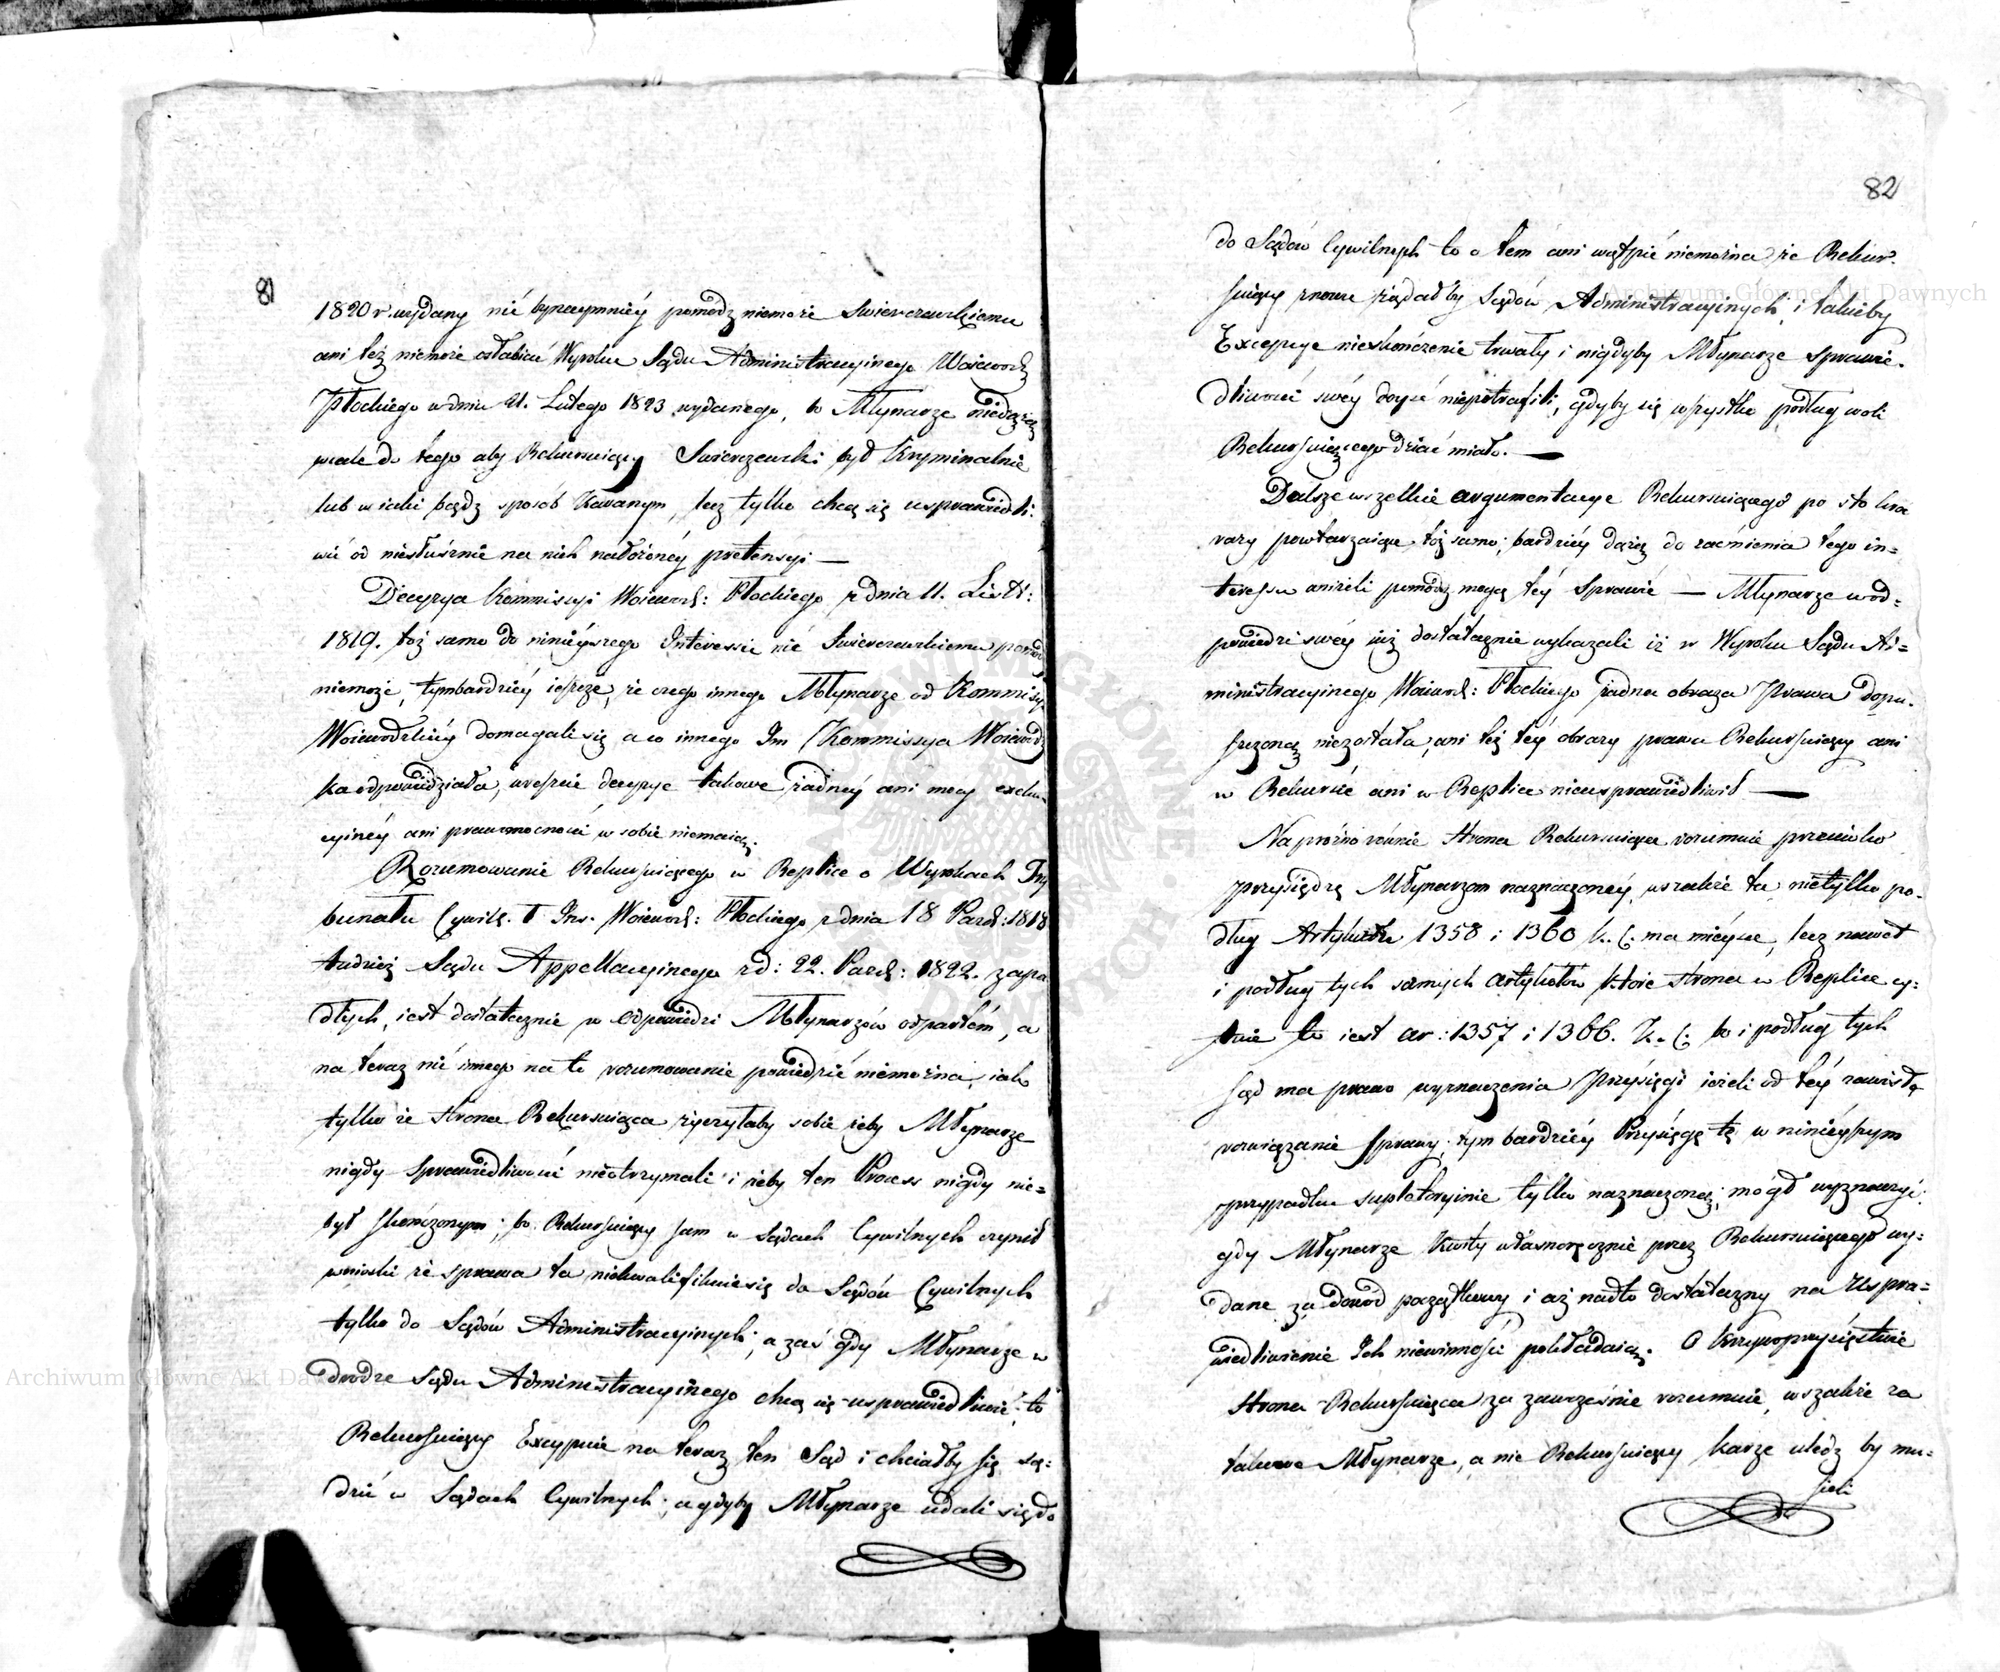 81
1820 r. wydany nić bynaymniéy pomodz niemoże Swierczewskiemu
ani też niemoże osłabiać Wyroku Sądu Administracyinego Woiewodz
Płockiego w dniu 21. Lutego 1823 wydanego, bo Młynarze niedążą
wcale do tego aby Rekursuiący Swierczewski był Kryminalnie
lub w iaki bądz sposób Karanym, lecz tylko chcą się usprawiedli:
wić od niesłusznie na nich nałożonéy pretensyi —
Decyzya Kommissyi Woiewodz: Płockiego z dnia 11. List:
1819. toż samo do ninieyszego Interessu nić Swierczewskiemu pomodz
niemoże, tymbardziéy ieszcze, że czego innego Młynarze od Kommissyi
Woiewodzkiéy domagali się a co innego Im Kommissya Woiewodz
ka odpowiedziała, wreszcie decyzye takowe żadnéy ani mocy exeku
cyinéy ani prawomocności w sobie niemaią.
Rozumowanie Rekursuiącego w Replice o Wyrokach Try
bunału Cywilt. I Ins. Woiewodz: Płockiego z dnia 18 Pazd: 1818
tudzież Sądu Appellacyinego z d: 22. Pazdz: 1822. zapa
dłych, iest dostatecznie w Odpowiedzi Młynarzów odpartém, a
na teraz nić innego na to rozumowanie powiedzieć niemożna, iako
tylko że Strona Rekursuiąca życzyłaby sobie żeby Młynarze
nigdy sprawiedliwości nieotrzymali i żeby ten Process nigdy nie=
był skończonym; bo Rekursuiący sam w Sądach Cywilnych czynił
wnioski że sprawa ta niekwalifikuie się do Sądów Cywilnych
tylko do Sądów Administracyinych; a zaś gdy Młynarze w
drodze Sądu Administracyinego chcą się usprawiedliwić, to
Rekursuiący Excypuie na teraz ten Sąd i chciałby się są:
dzić w Sądach Cywilnych; a gdyby Młynarze udali się do
82
do Sądów Cywilnych to o tem ani wątpić niemożna że Rekur.
suiący znowu żądałby Sądów Administracyinych, i takieby
Excepcye nieskończenie trwały i nigdyby Młynarze sprawie.
dliwości swéy doyść niepotrafili, gdyby się wszystko podług woli
Rekursuiącego dziać miało. —
Dalsze wszelkie argumentacye Rekursuiącego po sto kro
razy powtarzaiące toż samo; bardziéy dążą do zaćmienia tego in=
teressu aniżeli pomódz mogą téy Sprawie — Młynarze w od=
powiedzi swéy iuż dostatecznie wykazali iż w Wyroku Sądu Ad=
ministracyinego Woiewodz: Płockiego żadna obraza Prawa dopu.
szczoną niezostała, ani też téy obrazy prawa Rekursuiący ani
w Rekursie ani w Replice nieusprawiedliwił —
Napróżno równie Strona Rekursuiąca rozumuie przeciwko
przysiędze Młynarzom naznaczonéy, wszakże ta nietylko po=
dług Artykułu 1358 i 1360 k. C. ma mieysce, lecz nawet
i podług tych samych artykułów które Strona w Replice cy=
tuie to iest ar: 1357 i 1366. K. C. bo i podług tych
Sąd ma prawo wyznaczenia Przysięgi ieżeli od téy zawisło
rozwiązanie sprawy; tym bardziéy Przysięgę tę w ninieyszym
przypadku supletoryinie tylko naznaczoną; mógł wyznaczyć.
gdy Młynarze Kwity własnoręcznie przez Rekursuiącego wy=
dane za dowód początkowy i aż nadto dostateczny na Uspra=
wiedliwienie Ich niewinności pokładaią. O krzywoprzysięstwie
Strona Rekursuiąca za zawcześnie rozumuie, wszakże za
takowe Młynarze, a nie Rekursuiący karze uledz by mu=
sieli
Archiwum Główne Akt Dawnych
Archiwum Główne Akt Dawnych